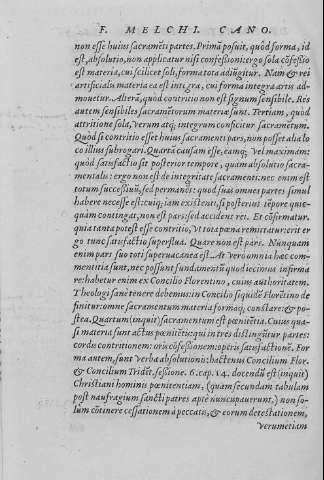 F. MELCHI. CANO.
non esse huius sacramẽti partes. Primã posuit, quòd forma, id
est, absolutio, non applicatur nisi confessioni: ergo sola cõfessio
est materia, cui scilicet soli, forma tota adiũgitur. Nam & rei
artificialis materia ea est integra, cui forma integra artis ad-
mouetur. Alterã, quòd contritio non est signum sensibile. Res
autem sensibiles sacramẽtorum materia sunt. Tertiam, quòd
attritione sola, verum atq; integrum conficitur sacramẽtum.
Quòd si contritio esset huius sacramenti pars, non posset alia lo
co illius subrogari. Quartã causam esse, eamq; vel maximam:
quòd satisfactio sit posterior tempore, quam absolutio sacra-
mentalis: ergo non est de integritate sacramenti: nec enim est
totum successiuũ, sed permanẽs: quod suas omnes partes simul
habere necesse est: cuiq; iam existenti, si posterius tẽpore quic-
quam contingat, non est pars: sed accidens rei. Et cõfirmatur.
quia tanta potest esse contritio, vt tota pœna remittatur: erit er
go tunc satisfactio superflua. Quare non est pars. Nunquam
enim pars suo toti superuacanea est. At verò omnia hæc com-
mentitia sunt, nec possunt fundamẽtũ quod iecimus infirma
re: habetur enim ex Concilio Florentino, cuius authoritatem,
Theologi sanè tenere debemus: in Concilio siquidẽ Florẽtino de
finitur: omne sacramentum materia formaq; constare: & po-
stea. Quartum (inquit) sacramentum est pœnitẽtia. Cuius qua-
si materia sunt actus pœnitẽtis: qui in tres distinguũtur partes:
cordis contritionem: oris cõfessionem: operis satisfactionẽ. For
ma autem, sunt verba absolutionis: hactenus Concilium Flor.
& Concilium Tridẽt. sessione. 6. cap. 14. docendũ est (inquit)
Christiani hominis pœnitentiam, (quam secundam tabulam
post naufragium sancti patres aptè nuncupauerunt,) non so-
lum cõtinere cessationem à peccato, & eorum detestationem,
verumetiam